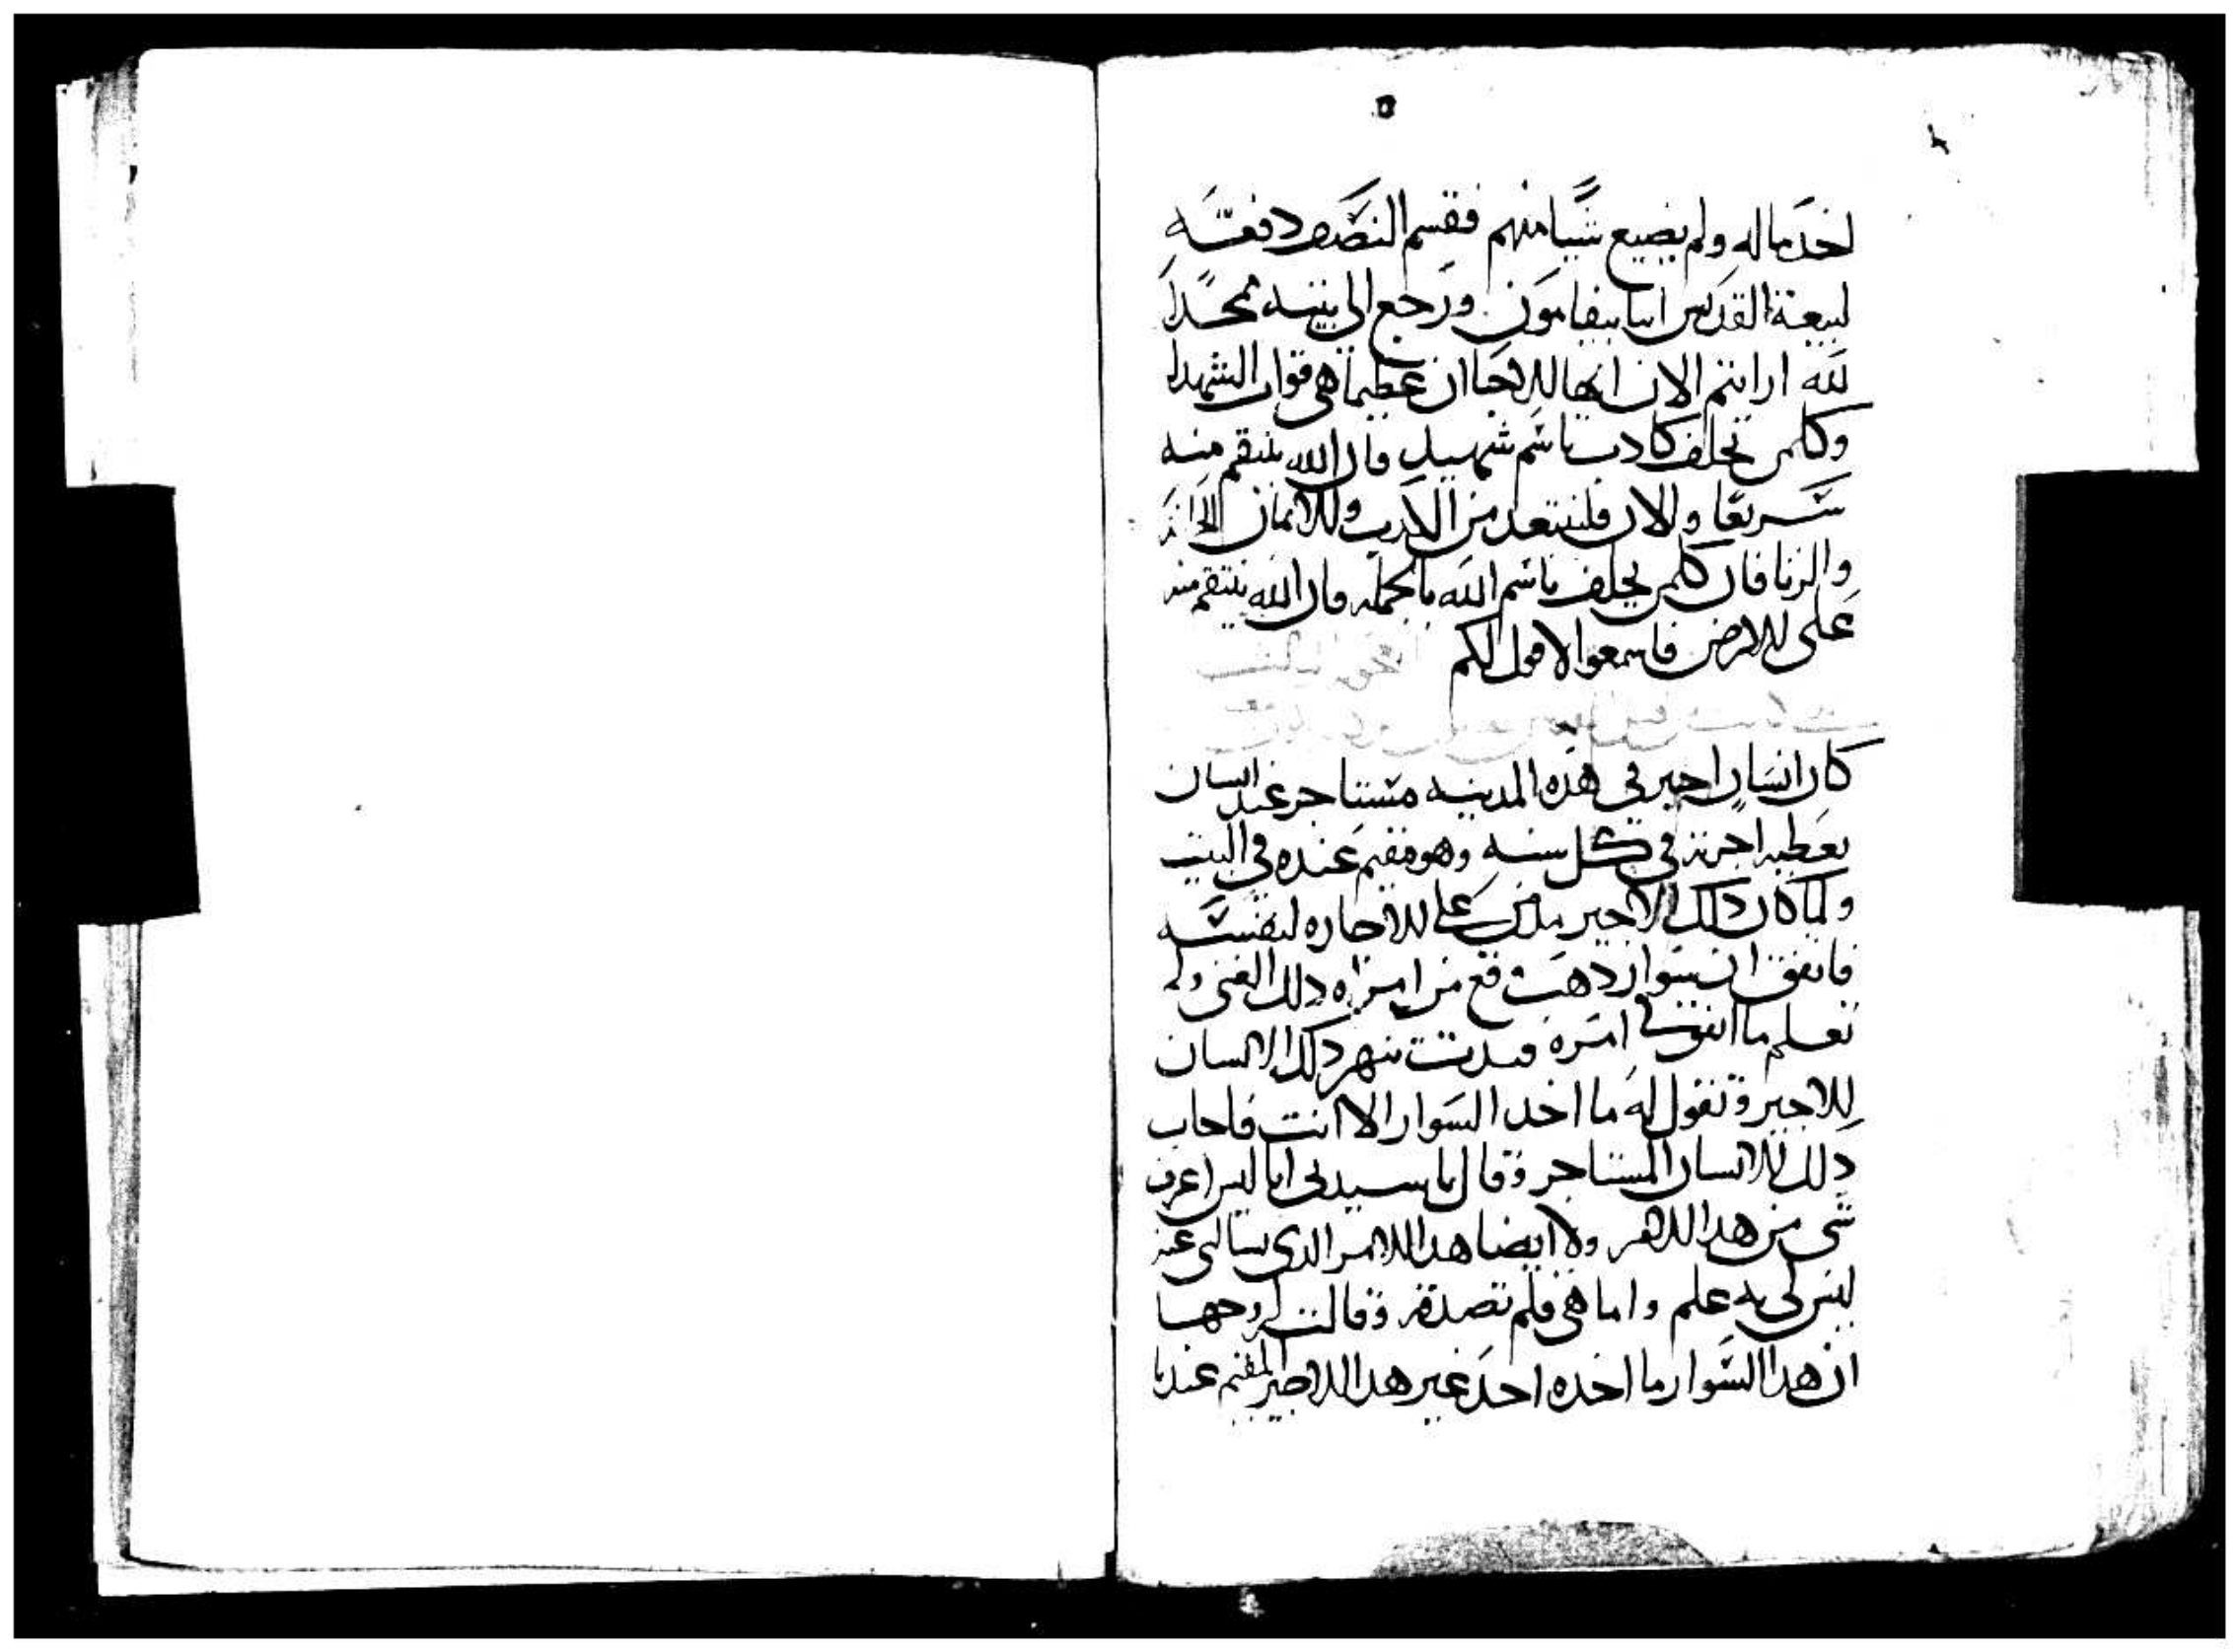 اخد ماله ولم يضيع شيا منهم فقسم النصف دفعه
لبيعة القديس ابا بيفامون ورجع الى بيته ممجدا
لله ارايتم الان ايها الاحبا ان عظيما هي قوات الشهدا
وكلمن يحلف كادب باسم شهيد فان الله ينتقم منه
سريعا والان فلنبتعد من الكدب والايمان
والزنا فان كلمن يحلف باسم الله بالجمله فان الله ينتقم منه
على الارض فاسمعوا لاقول لكم
كان انسان اجير في هذه المدينه مستاجر عند انسان
يعطيه اجرته في كل سنه وهو مقيم عنده في البيت
ولما كان دلك الاجير على الاجاره لنفسه
فاتفق ان سوار دهب وقع من امراه دلك الغني ولم
تعلم ما امره فبدت تنهر دلك الانسان
الاجير وتقول له ما اخد السوار الا انت فاجاب
دلك الانسان المستاجر وقال يا سيدتي انا ليس اعرف
شي من هدا الدهر ولا ايضا هدا الامر الدي تساليني عنه
ليس لي به علم واما هي فلم تصدقه وقالت لزوجها
ان هدا السوار ما اخده احد غير هدا الاجير المقيم عندنا